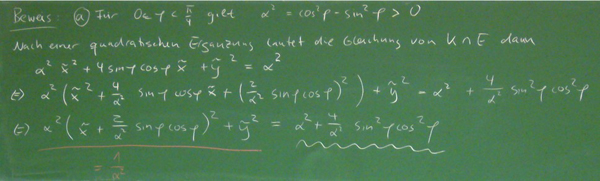 Beweis: (a) Für 0 ≤ φ < π/4 gilt α² = cos²φ - sin²φ > 0
Nach einer quadratischen Ergänzung lautet die Gleichung von K∩E dann
α² x̃² + 4 sinφ cosφ x̃ + ỹ² = α²
(⇔) α² (x̃² + 4/α² sinφ cosφ x̃ + (2/α² sinφ cosφ)²) + ỹ² = α² + 4/α² sin²φ cos²φ
(⇔) α² (x̃ + 2/α² sinφ cosφ)² + ỹ² = α² + 4/α² sin²φ cos²φ
= 1/α²